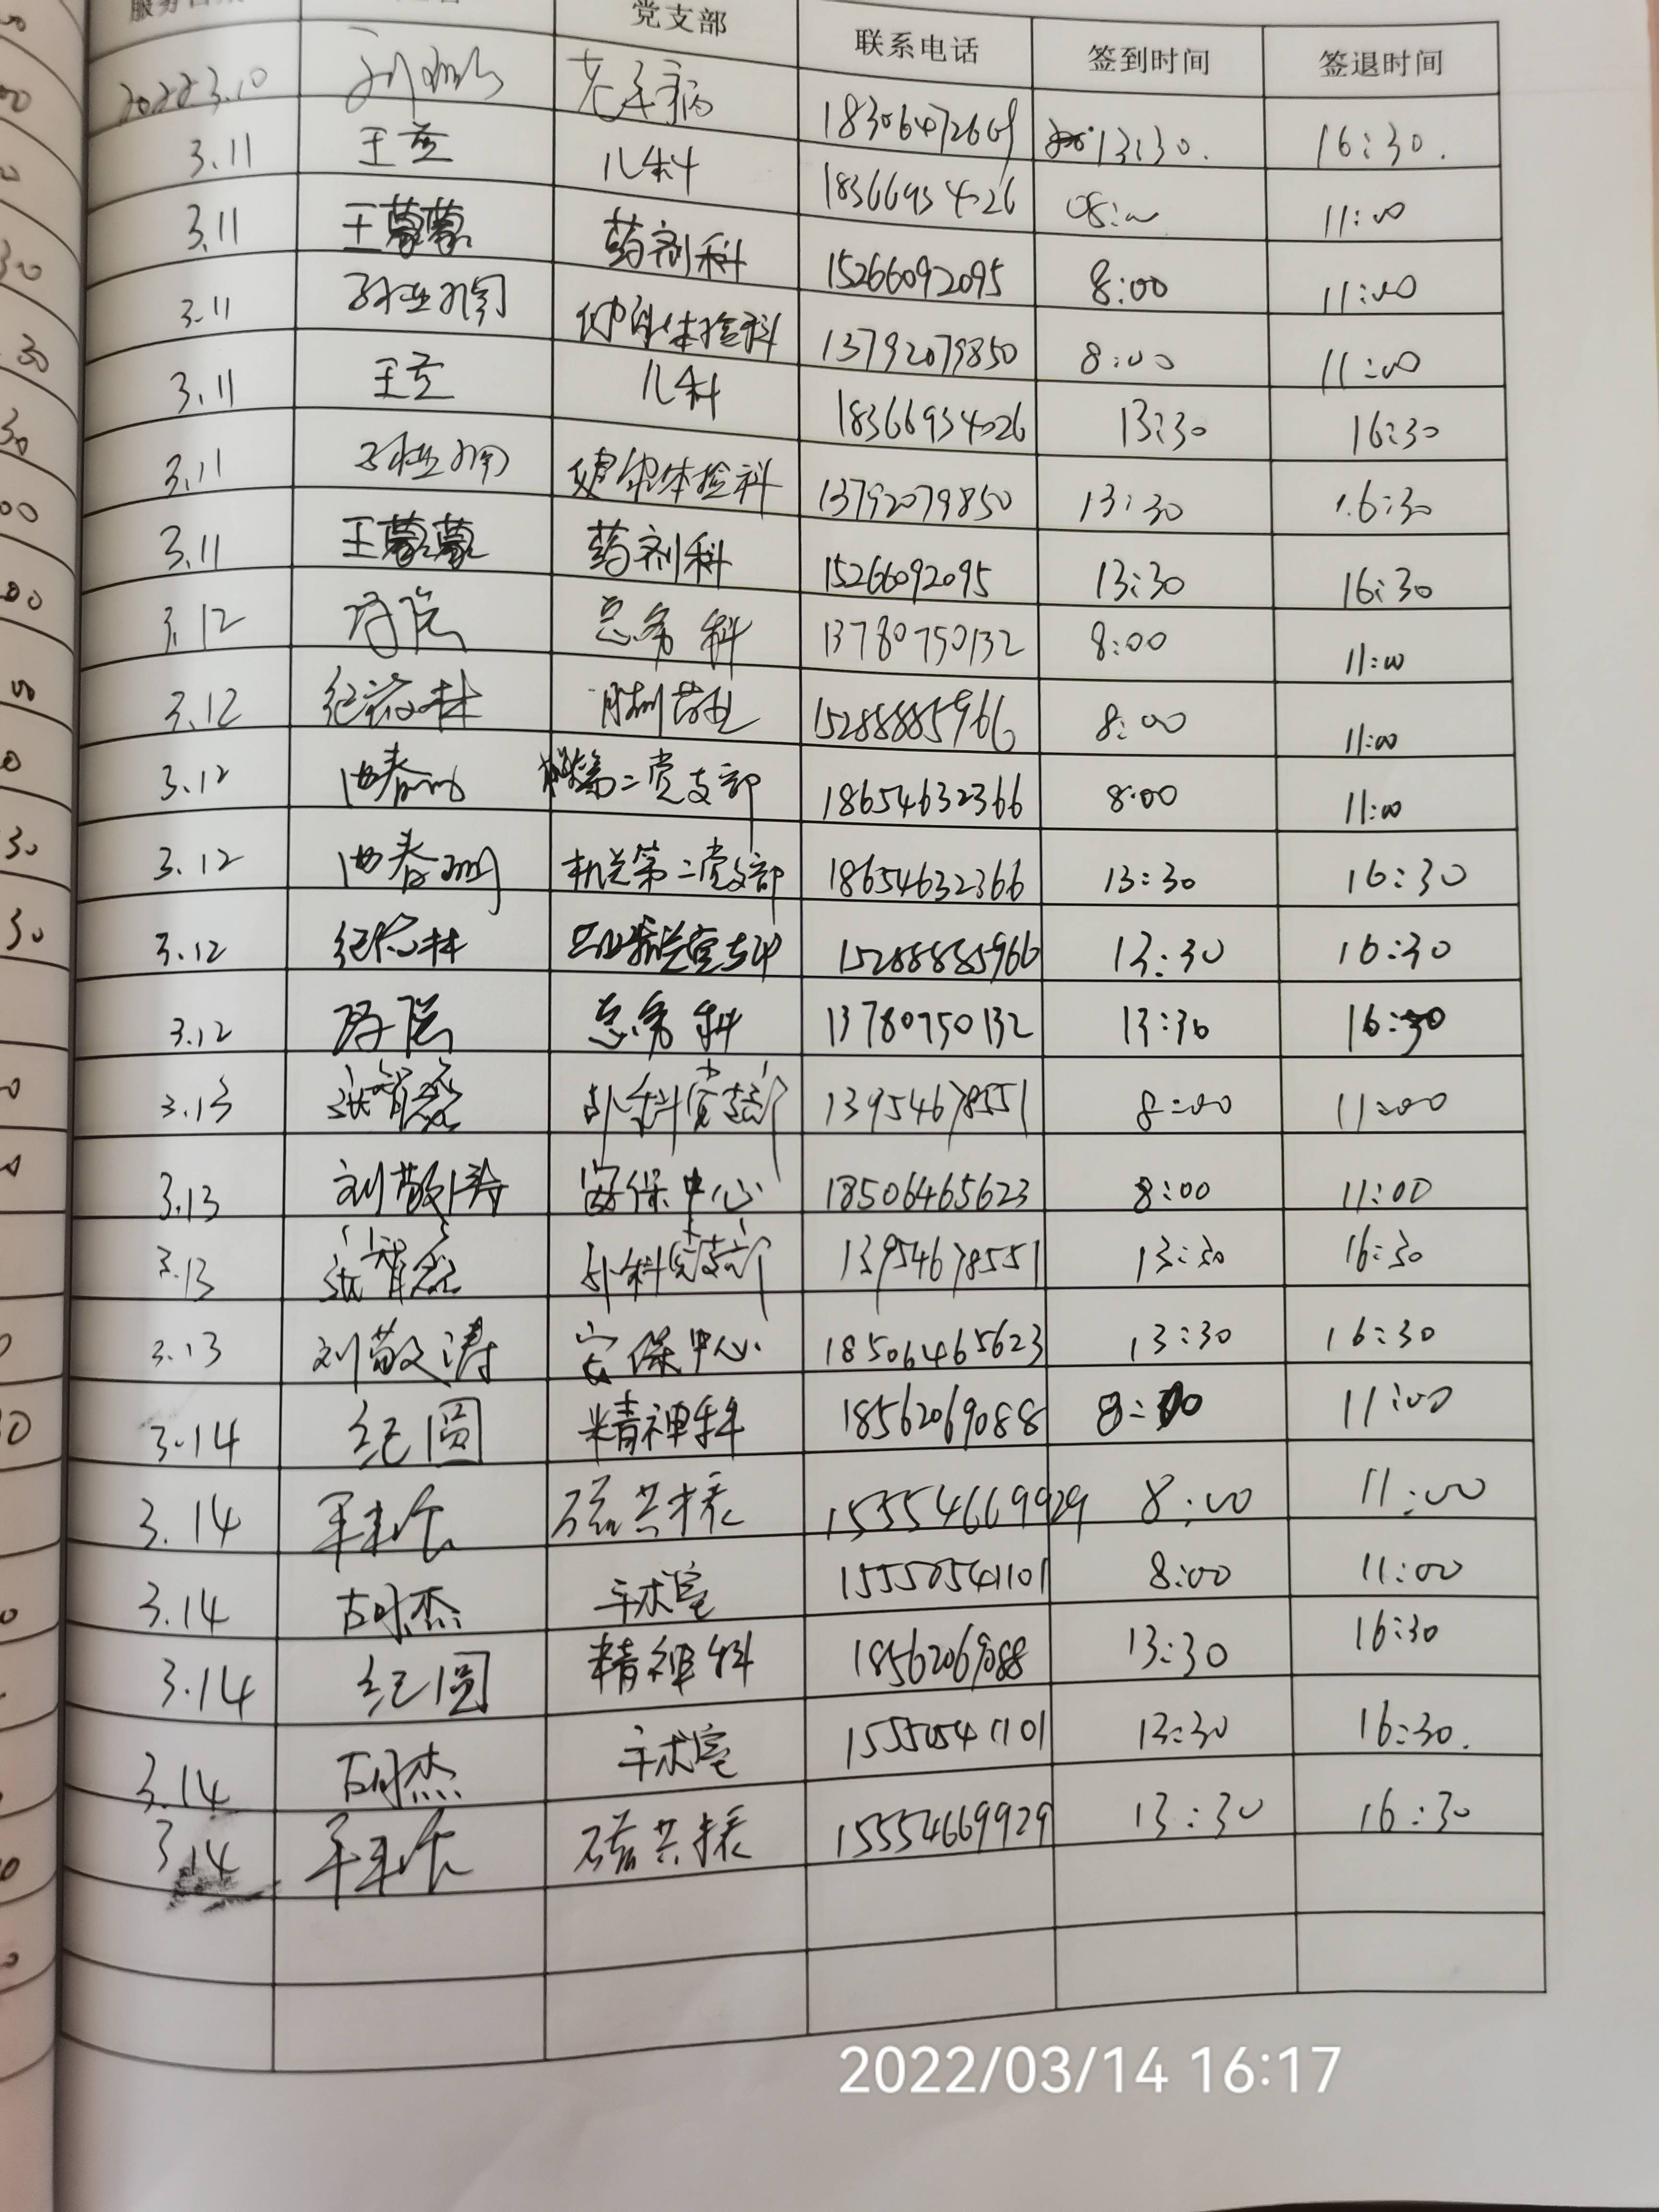 党支部 联系电话 签到时间 签退时间
2022 3.10 老年病 13:30. 16:30.
3.11 王 儿科 18366934026 08:00 11:00
3.11 王蒙蒙 药剂科 15266092095 8:00 11:00
3.11 体检科 13792079850 8:00 11:00
3.11 王 儿科 18366934026 13:30 16:30
3.11 健康体检科 13792079850 13:30 16:30
3.11 王蒙蒙 药剂科 15266092095 13:30 16:30
3.12 总务科 13780750132 8:00 11:00
3.12 纪 林 15288885966 8:00 11:00
3.12 曲春 第二党支部 18654632366 8:00 11:00
3.12 曲春 机关第二党支部 18654632366 13:30 16:30
3.12 纪 林 15288885966 13:30 16:30
3.12 总务科 13780750132 13:30 16:30
3.13 张 外科党支部 13954678551 8:00 11:00
3.13 刘敬涛 安保中心 18506465623 8:00 11:00
3.13 张 外科党支部 13954678551 13:30 16:30
3.13 刘敬涛 安保中心 18506465623 13:30 16:30
3.14 纪圆 精神科 18562069088 8:00 11:00
3.14 磁共振 15554669929 8:00 11:00
3.14 杰 手术室 15550541101 8:00 11:00
3.14 纪圆 精神科 18562069088 13:30 16:30
3.14 杰 手术室 15550541101 13:30 16:30.
3.14 磁共振 15554669929 13:30 16:30
2022/03/14 16:17